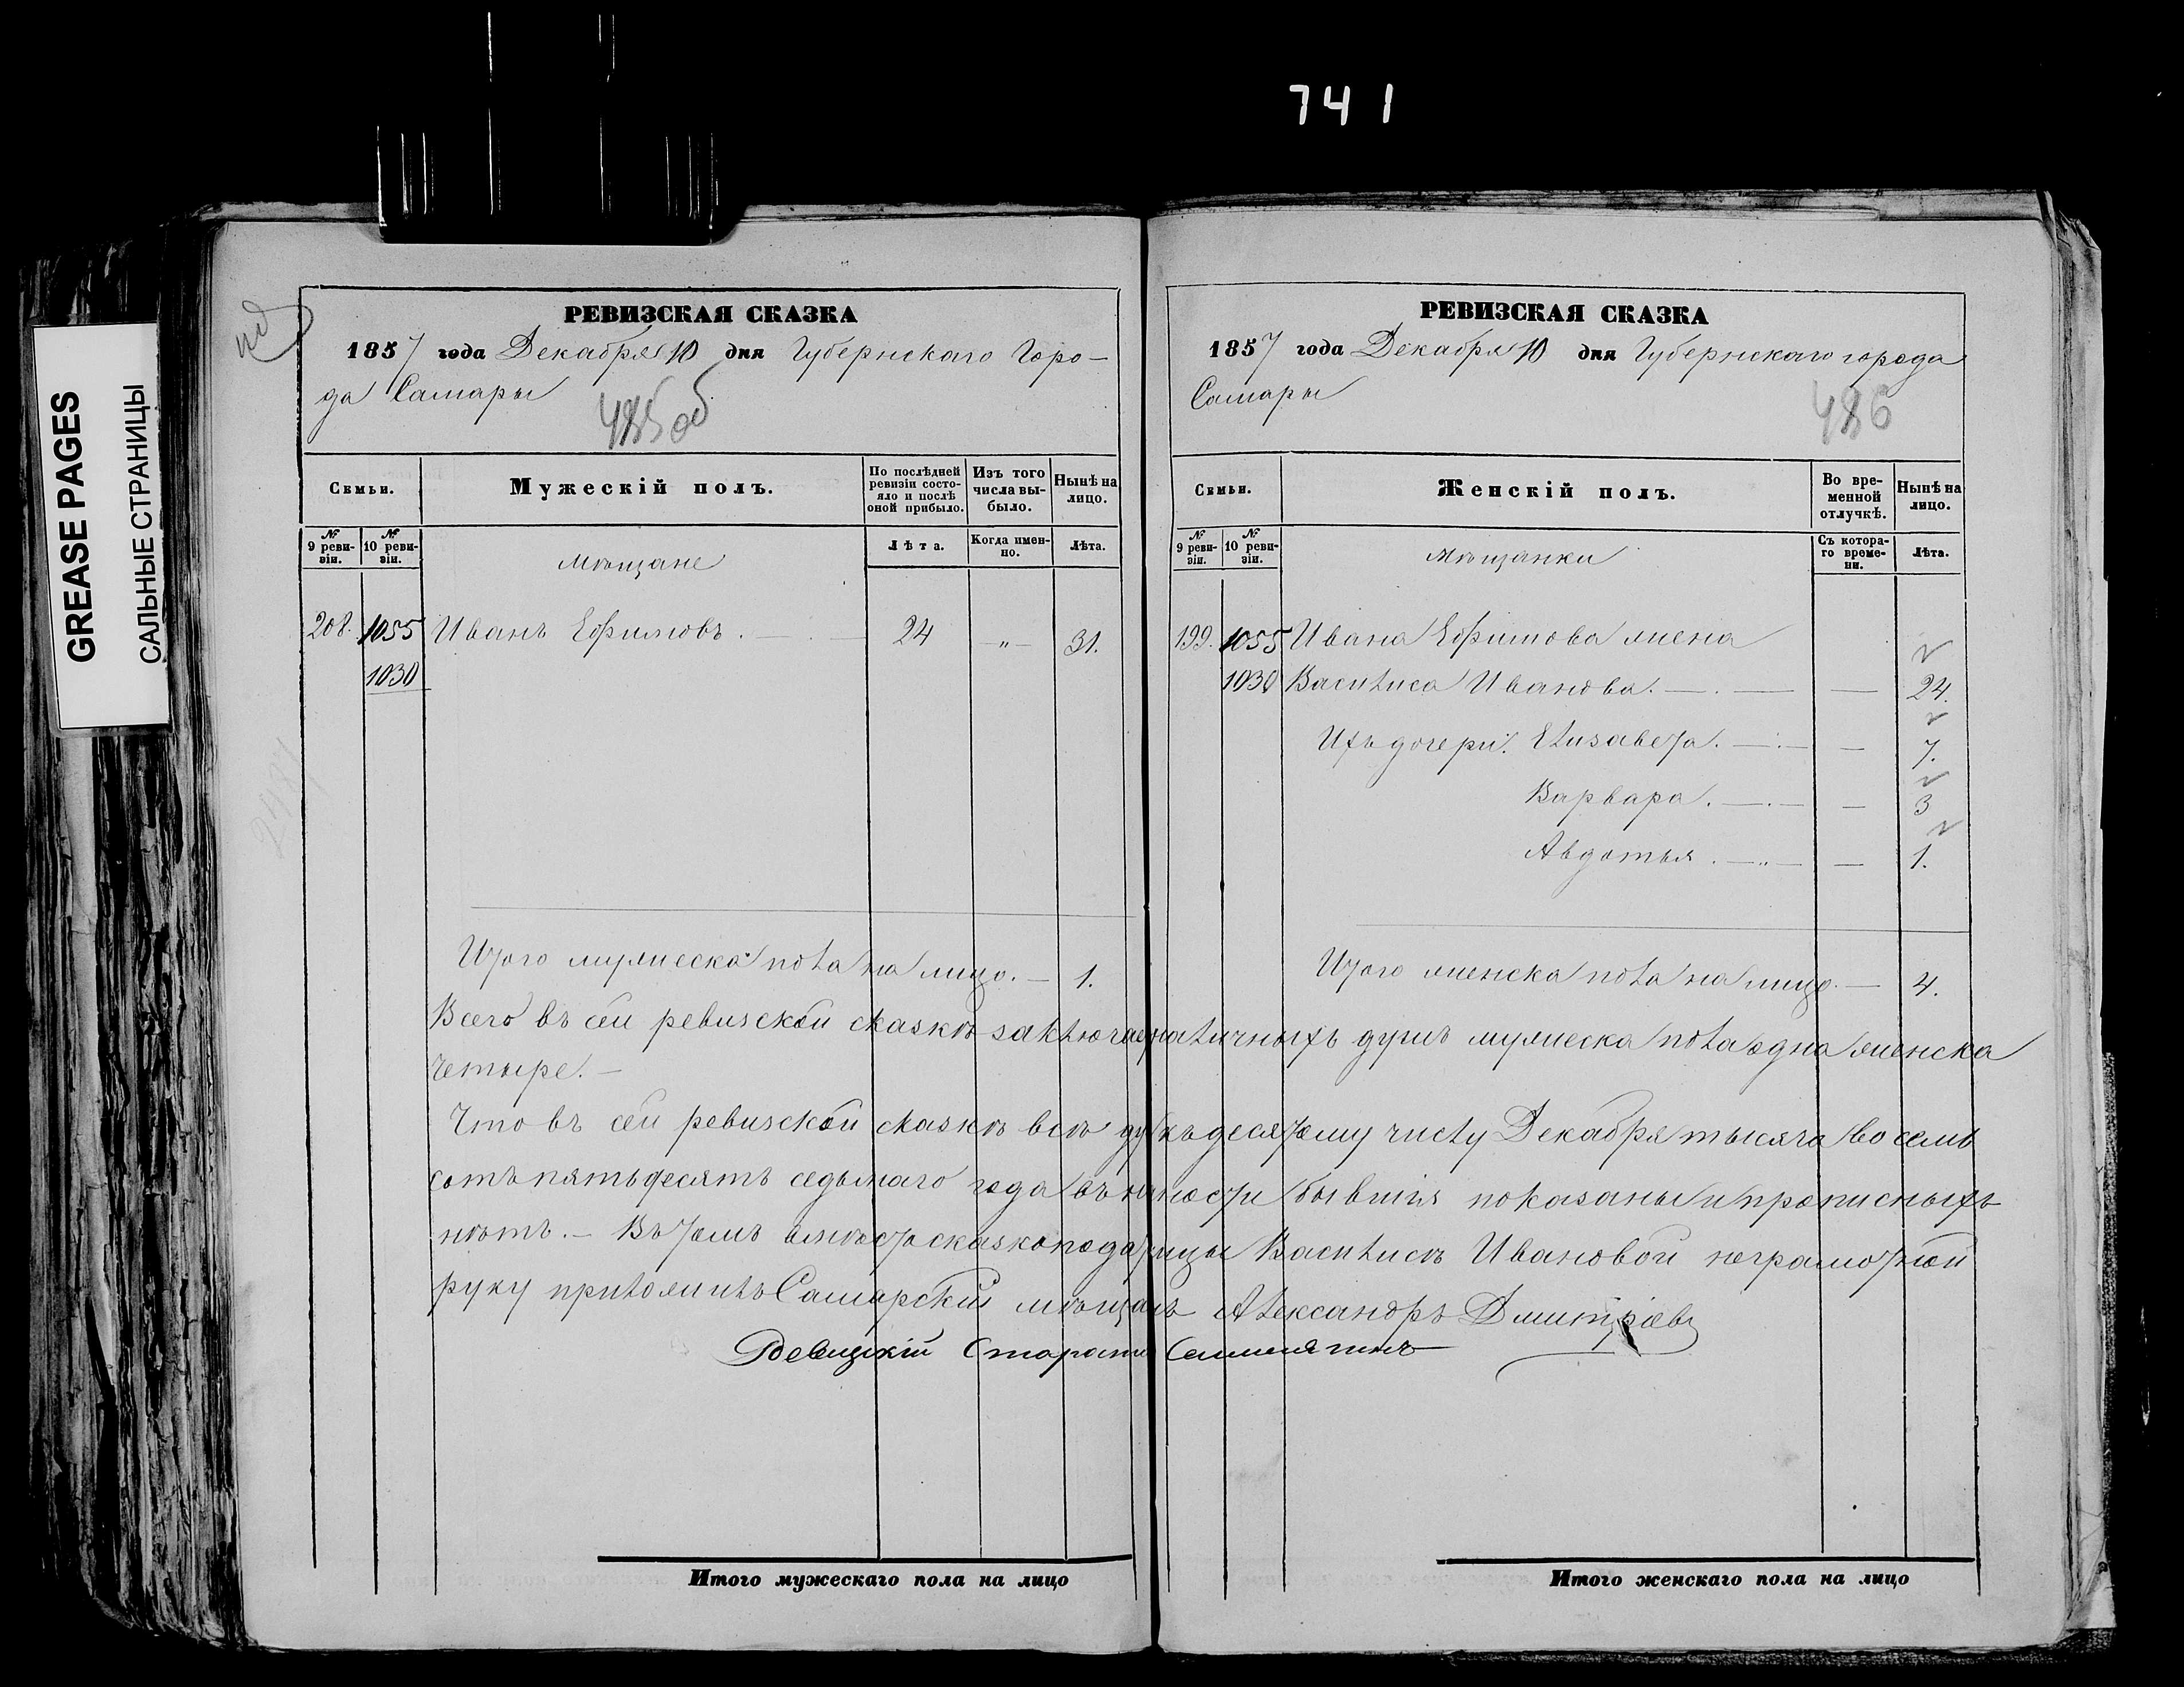 741
GREASE PAGES
САЛЬНЫЕ СТРАНИЦЫ
РЕВИЗСКАЯ СКАЗКА
1857 года Декабря 10 дня Губернскаго Горо-
да Самары
485 об
Семьи.
Мужескій полъ.
По послѣдней ревизіи состо-яло и послѣ оной прибыло.
Изъ того числа вы-было.
Нынѣ на лицо.
№ 9 реви-зіи.
№ 10 реви-зіи.
мѣщане
Лѣта.
Когда имен-но.
Лѣта.
208. 1055 Иванъ Ефимовъ. 24 -„- 31.
1030
Итого мужеска пола на лицо. — 1.
РЕВИЗСКАЯ СКАЗКА
1857 года Декабря 10 дня Губернскаго города
Самары
486
Семьи.
Женскій полъ.
Во вре-менной отлучкѣ.
Нынѣ на лицо.
№ 9 реви-зіи.
№ 10 реви-зіи.
мѣщанки
Съ котора-го време-ни.
Лѣта.
199. 1055 Ивана Ефимова жена
1030 Василиса Иванова. — 24.
Ихъ дочери: Елизавета. — 7.
Варвара. — 3
Авдотья. — 1.
Итого женска пола на лицо. — 4.
Всего въ сей ревизской сказкѣ заключае наличныхъ душъ мужеска пола одна женска
четыре. —
Что въ сей ревизской сказкѣ всѣ ду къ десятому числу Декабря тысяча восемь
сотъ пятьдесятъ седьмаго года въ налично сти бывшія показаны и прописныхъ
нѣтъ. — Въ томъ вмѣсто сказкоподатицы Василисѣ Ивановой неграмотной
руку приложилъ Самарскій мѣщанъ Александръ Дмитріевъ
Ревизскій Староста
Итого мужескаго пола на лицо
Итого женскаго пола на лицо